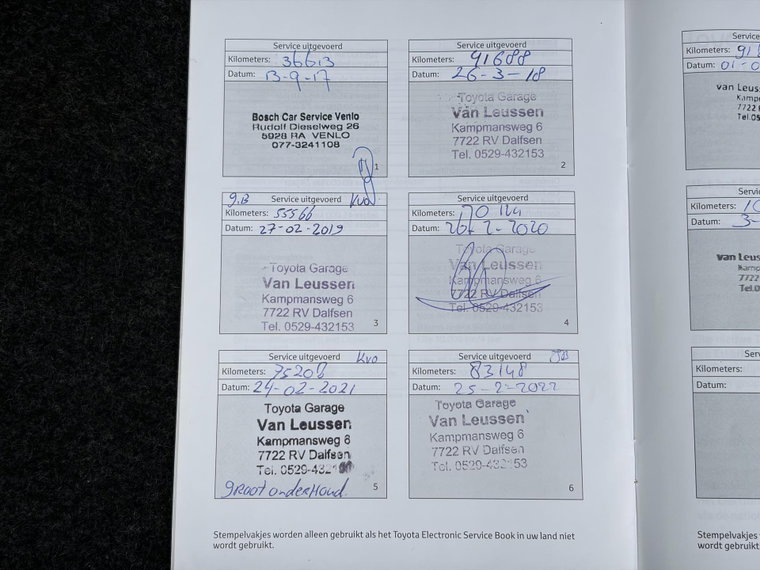 Service uitgevoerd
Kilometers: 36613
Datum: 13-9-17
Bosch Car Service Venlo
Rudolf Dieselweg 26
5928 RA VENLO
077-3241108
1
Service uitgevoerd
Kilometers: 41688
Datum: 26-3-18
Toyota Garage
Van Leussen
Kampmansweg 6
7722 RV Dalfsen
Tel. 0529-432153
2
g.B Service uitgevoerd Kvo
Kilometers: 55566
Datum: 27-02-2019
Toyota Garage
Van Leussen
Kampmansweg 6
7722 RV Dalfsen
Tel. 0529-432153
3
Service uitgevoerd
Kilometers:
Datum: 26-2-2020
Toyota Garage
Van Leussen
Kampmansweg 6
7722 RV Dalfsen
Tel. 0529-432153
4
Service uitgevoerd Kvo
Kilometers: 75208
Datum: 24-02-2021
Toyota Garage
Van Leussen
Kampmansweg 6
7722 RV Dalfsen
Tel. 0529-432
groot onderhoud
5
Service uitgevoerd
Kilometers: 83148
Datum: 25-2-2022
Toyota Garage
Van Leussen
Kampmansweg 6
7722 RV Dalfsen
Tel. 0529-432153
6
Stempelvakjes worden alleen gebruikt als het Toyota Electronic Service Book in uw land niet
wordt gebruikt.
Service
Kilometers:
Datum:
van Leus
Tel.05
Kilometers:
Datum:
van Leus
7722
Tel.0
Kilometers:
Datum:
Stempelvakjes wo
wordt gebruikt.